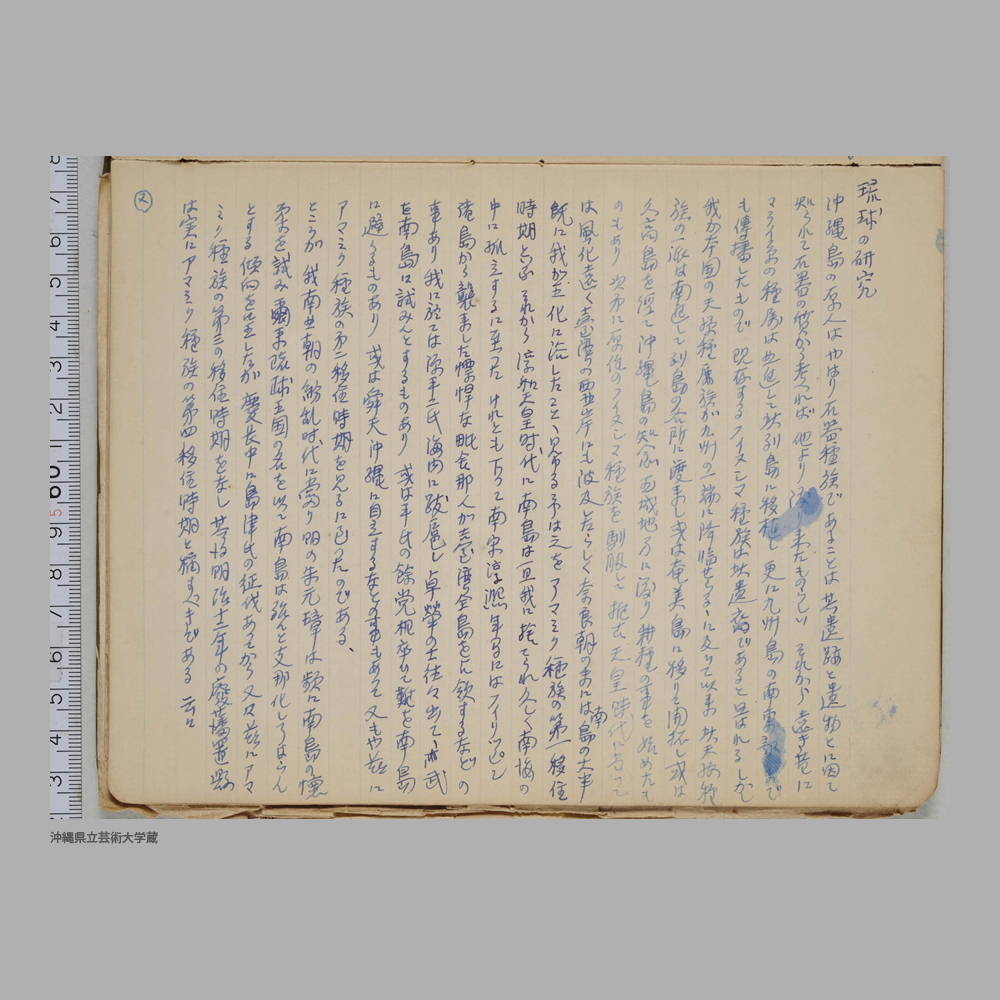 琉球の研究
沖縄島の原人はやはり石器種族であることは其遺跡と遺物とに因て
知られて石器の質から考へれば他より渡り来たものらしい それから遠き昔に
マライ系の種属は北進して此列島に移植し 更に九州島の南寄部まで
も伝播したもので 現存するフイヌシマ種族は其遺裔であると思はれる しかし
我が本国の天孫種属族が九州の一端に降臨せらるゝに及びて以来 此天孫種
族の一派は南退して列島の各所に渡来し或は奄美島に移りて開拓し或は
久高島を経て沖縄島の知念玉城地方に渡り耕種の事を始めたも
のもあり 次第に原住のフイヌシマ種族を馴服して 推古天皇時代に当て
は風化遠く台湾の西岸にも波及したらしく奈良朝の末には南島の大半
既に我が王化に浴したこと、見ゆる予は之をアマミク種族の第一移住
時期と云ふ それから淳和天皇時代に南島は一旦我に捨てられ久しく南海の
中に孤立するに至つた けれとも下つて南宋淳熙年間にはフイリツピン
諸島から襲来した慓悍な毗舎那人が台湾全島を併飲するなどの
事あり 我に於ては源平二氏海内に跋扈し 卓犖の士往々出て、亦武
を南島に試みんとするものあり 或は平氏の餘党相率ひて難を南島
に避くるものあり 或は舜天沖縄に自立するなとの事もあつて 又もや茲に
アマミク種族の第二移住時期を見るに至つたのである、
ところが 我南北朝の紛乱時代に当り 明の朱元璋は頻に南島の懐
柔を試み爾来琉球王国の名を以て南島は殆んと支那化してしまはん
とする傾向を呈したが 慶長中に島津氏の征伐あつてから 又々茲にアマ
ミク種族の第三の移住時期をなし 其後明治十二年の廃藩置県
は実にアマミク種族の第四移住時期と称すべきである 云々
2
沖縄県立芸術大学蔵